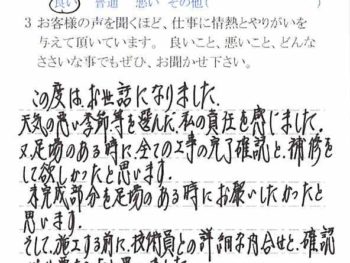 良い 普通 悪い その他( )
3 お客様の声を聞くほど、仕事に情熱とやりがいを
与えて頂いています。 良いこと、悪いこと、どんな
ささいな事でもぜひ、お聞かせ下さい。
この度はお世話になりました。
天気の悪い季節等を選んだ、私の責任を感じました。
又、足場のある時に、全ての工事の完了確認と、補修を
して欲しかったと思います。
未完成部分を足場のある時にお願いしたかったと
思います。
そして、施工する前に、技術員との詳細な内合せと、確認